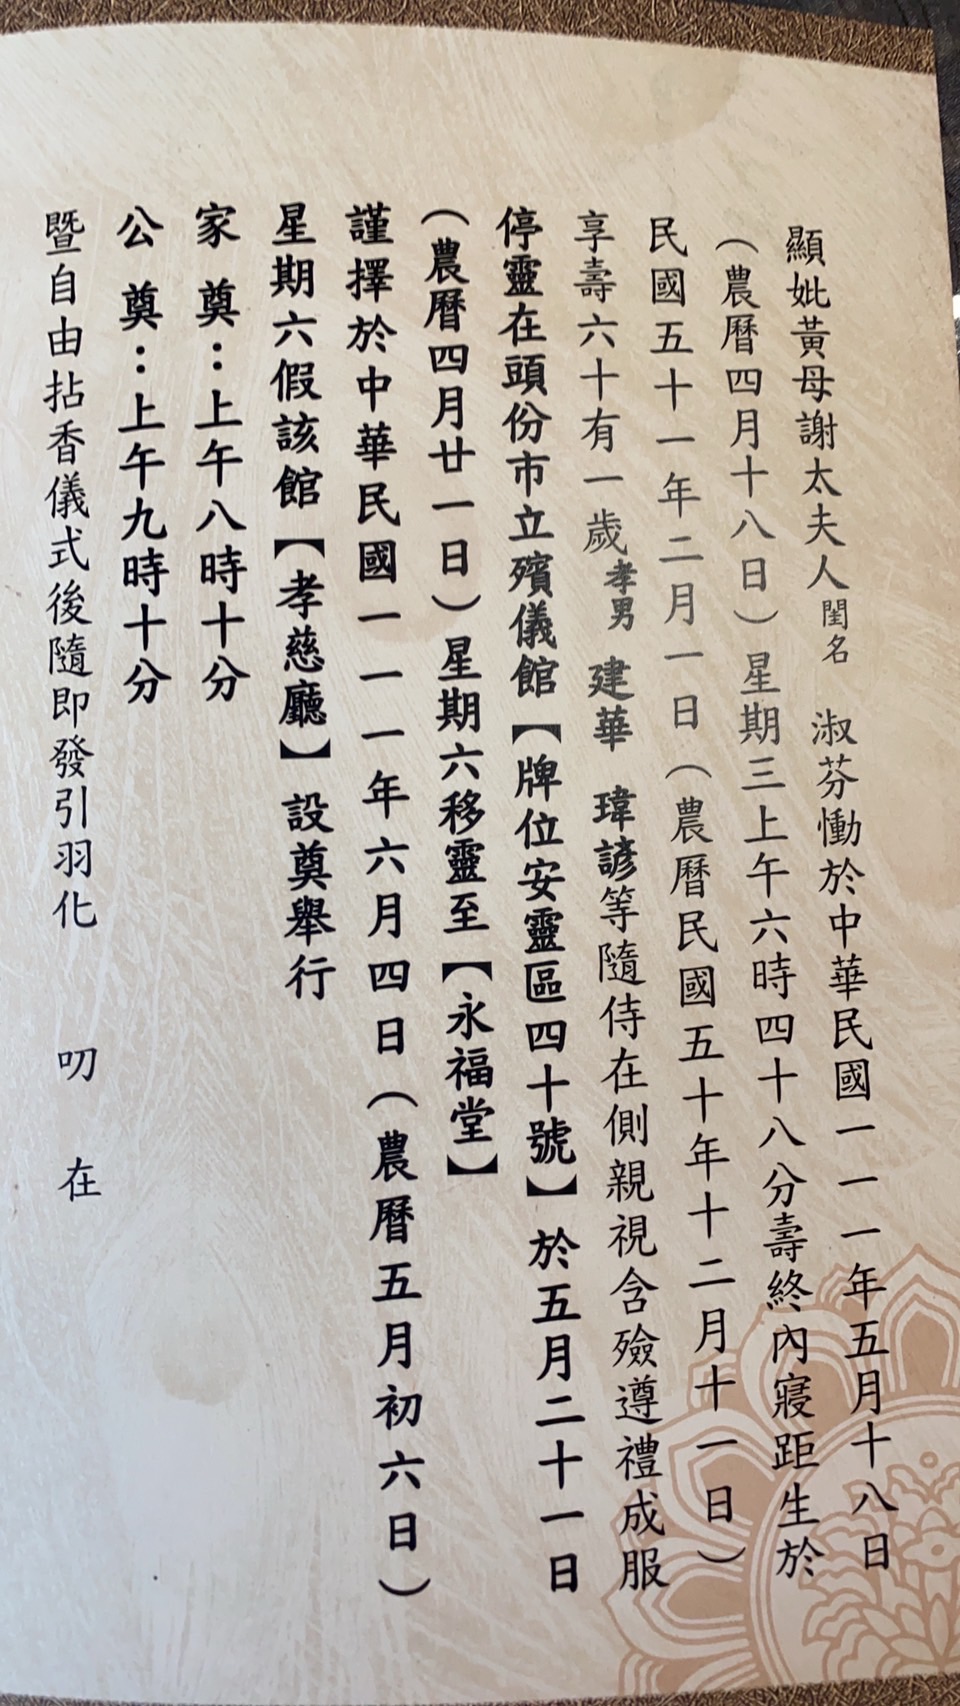 顯妣黃母謝太夫人閨名 淑芬慟於中華民國一一一年五月十八日
（農曆四月十八日）星期三上午六時四十八分壽終內寢距生於
民國五十一年二月一日（農曆民國五十年十二月十一日）
享壽六十有一歲孝男 建華 瑋諺等隨侍在側親視含殮遵禮成服
停靈在頭份市立殯儀館【牌位安靈區四十號】於五月二十一日
（農曆四月廿一日）星期六移靈至【永福堂】
謹擇於中華民國一一一年六月四日（農曆五月初六日）
星期六假該館【孝慈廳】設奠舉行
家 奠：上午八時十分
公 奠：上午九時十分
暨自由拈香儀式後隨即發引羽化 叨 在